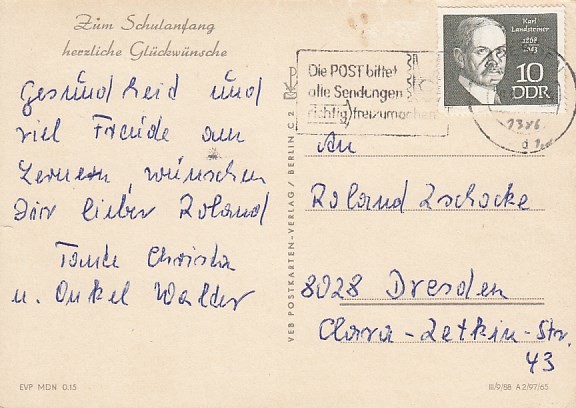 Zum Schulanfang
herzliche Glückwünsche
Gesundheid und
viel Freude am
Lernen, wünschen
Dir lieber Roland
Tante Christa
u. Onkel Walder
VEB POSTKARTEN-VERLAG / BERLIN C 2
Die POST bittet
alle Sendungen
richtig freizumachen
Karl
Landsteiner
1868
1943
10
DDR
An
Roland Zschocke
8028 Dresden
Clara-Zetkin-Str.
43
EVP MDN 0.15
III/9/88 A 2/97/65